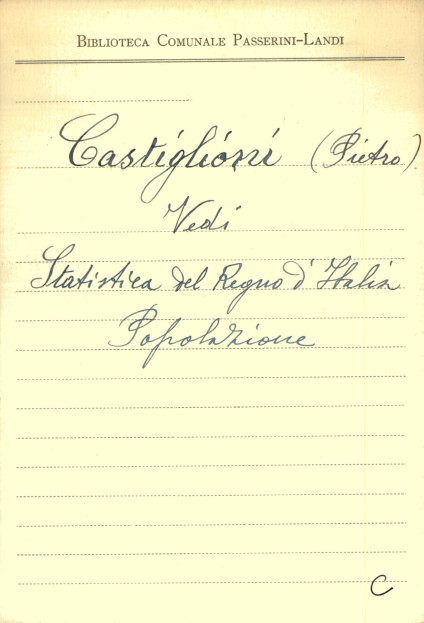 BIBLIOTECA COMUNALE PASSERINI-LANDI
Castiglioni (Pietro)
Vedi
Statistica del Regno d'Italia
Popolazione
C